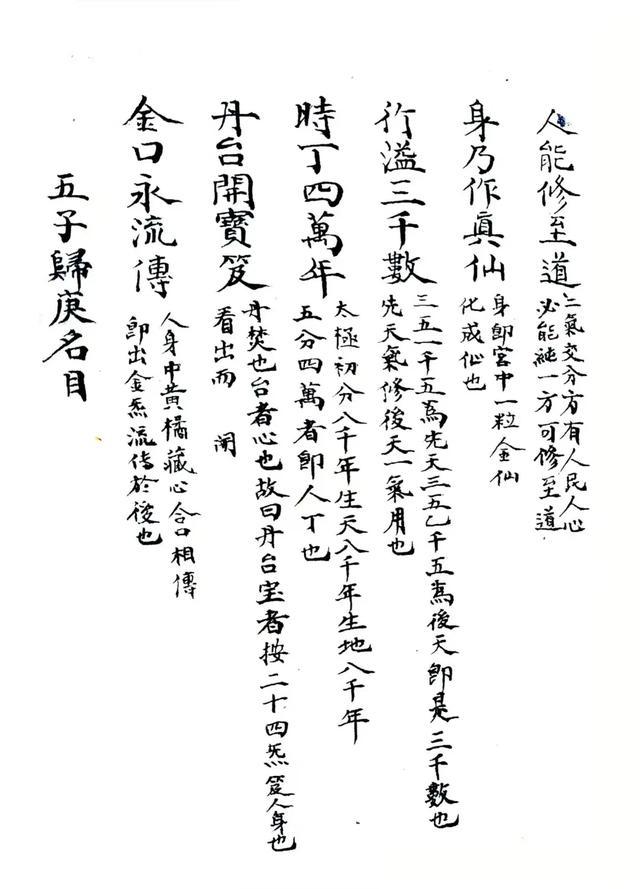 人能修至道
二氣交分方有人民人心
必能純一方可修至道
身乃作真仙
身即宮中一粒金仙
化成仙也
行溢三千數
三五一千五為先天三五乙千五為後天即是三千數也
先天氣修後天一氣用也
時丁四萬年
太極初分八千年生天八千年生地八千年
五分四萬者即人丁也
丹台開寶笈
丹焚也台者心也故曰丹台宝者按二十四炁笈人身也
看出而 開
金口永流傳
人身中黃橘藏心合口相傳
即出金炁流传於後也
五子歸庚名目